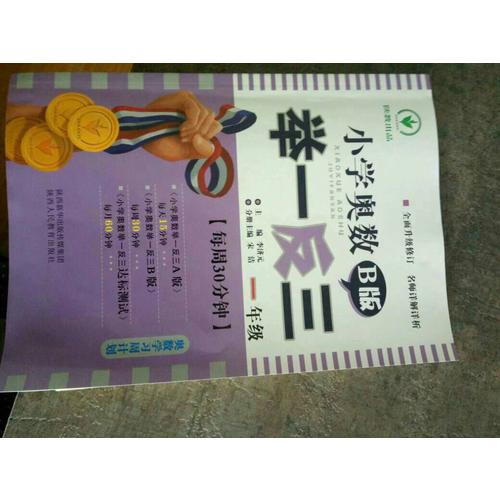 陕教出品
全面升级修订 名师详解详析
小学奥数B版
XIAOXUE AOSHU
JUYIFANSAN
举一反三
一年级
主 编 李济元
分册主编 宋 洁
【每周30分钟】
《小学奥数举一反三A版》
每天15分钟
《小学奥数举一反三B版》
每周30分钟
《小学奥数举一反三达标测试》
每月60分钟
奥数学习周计划
陕西新华出版传媒集团
陕西人民教育出版社